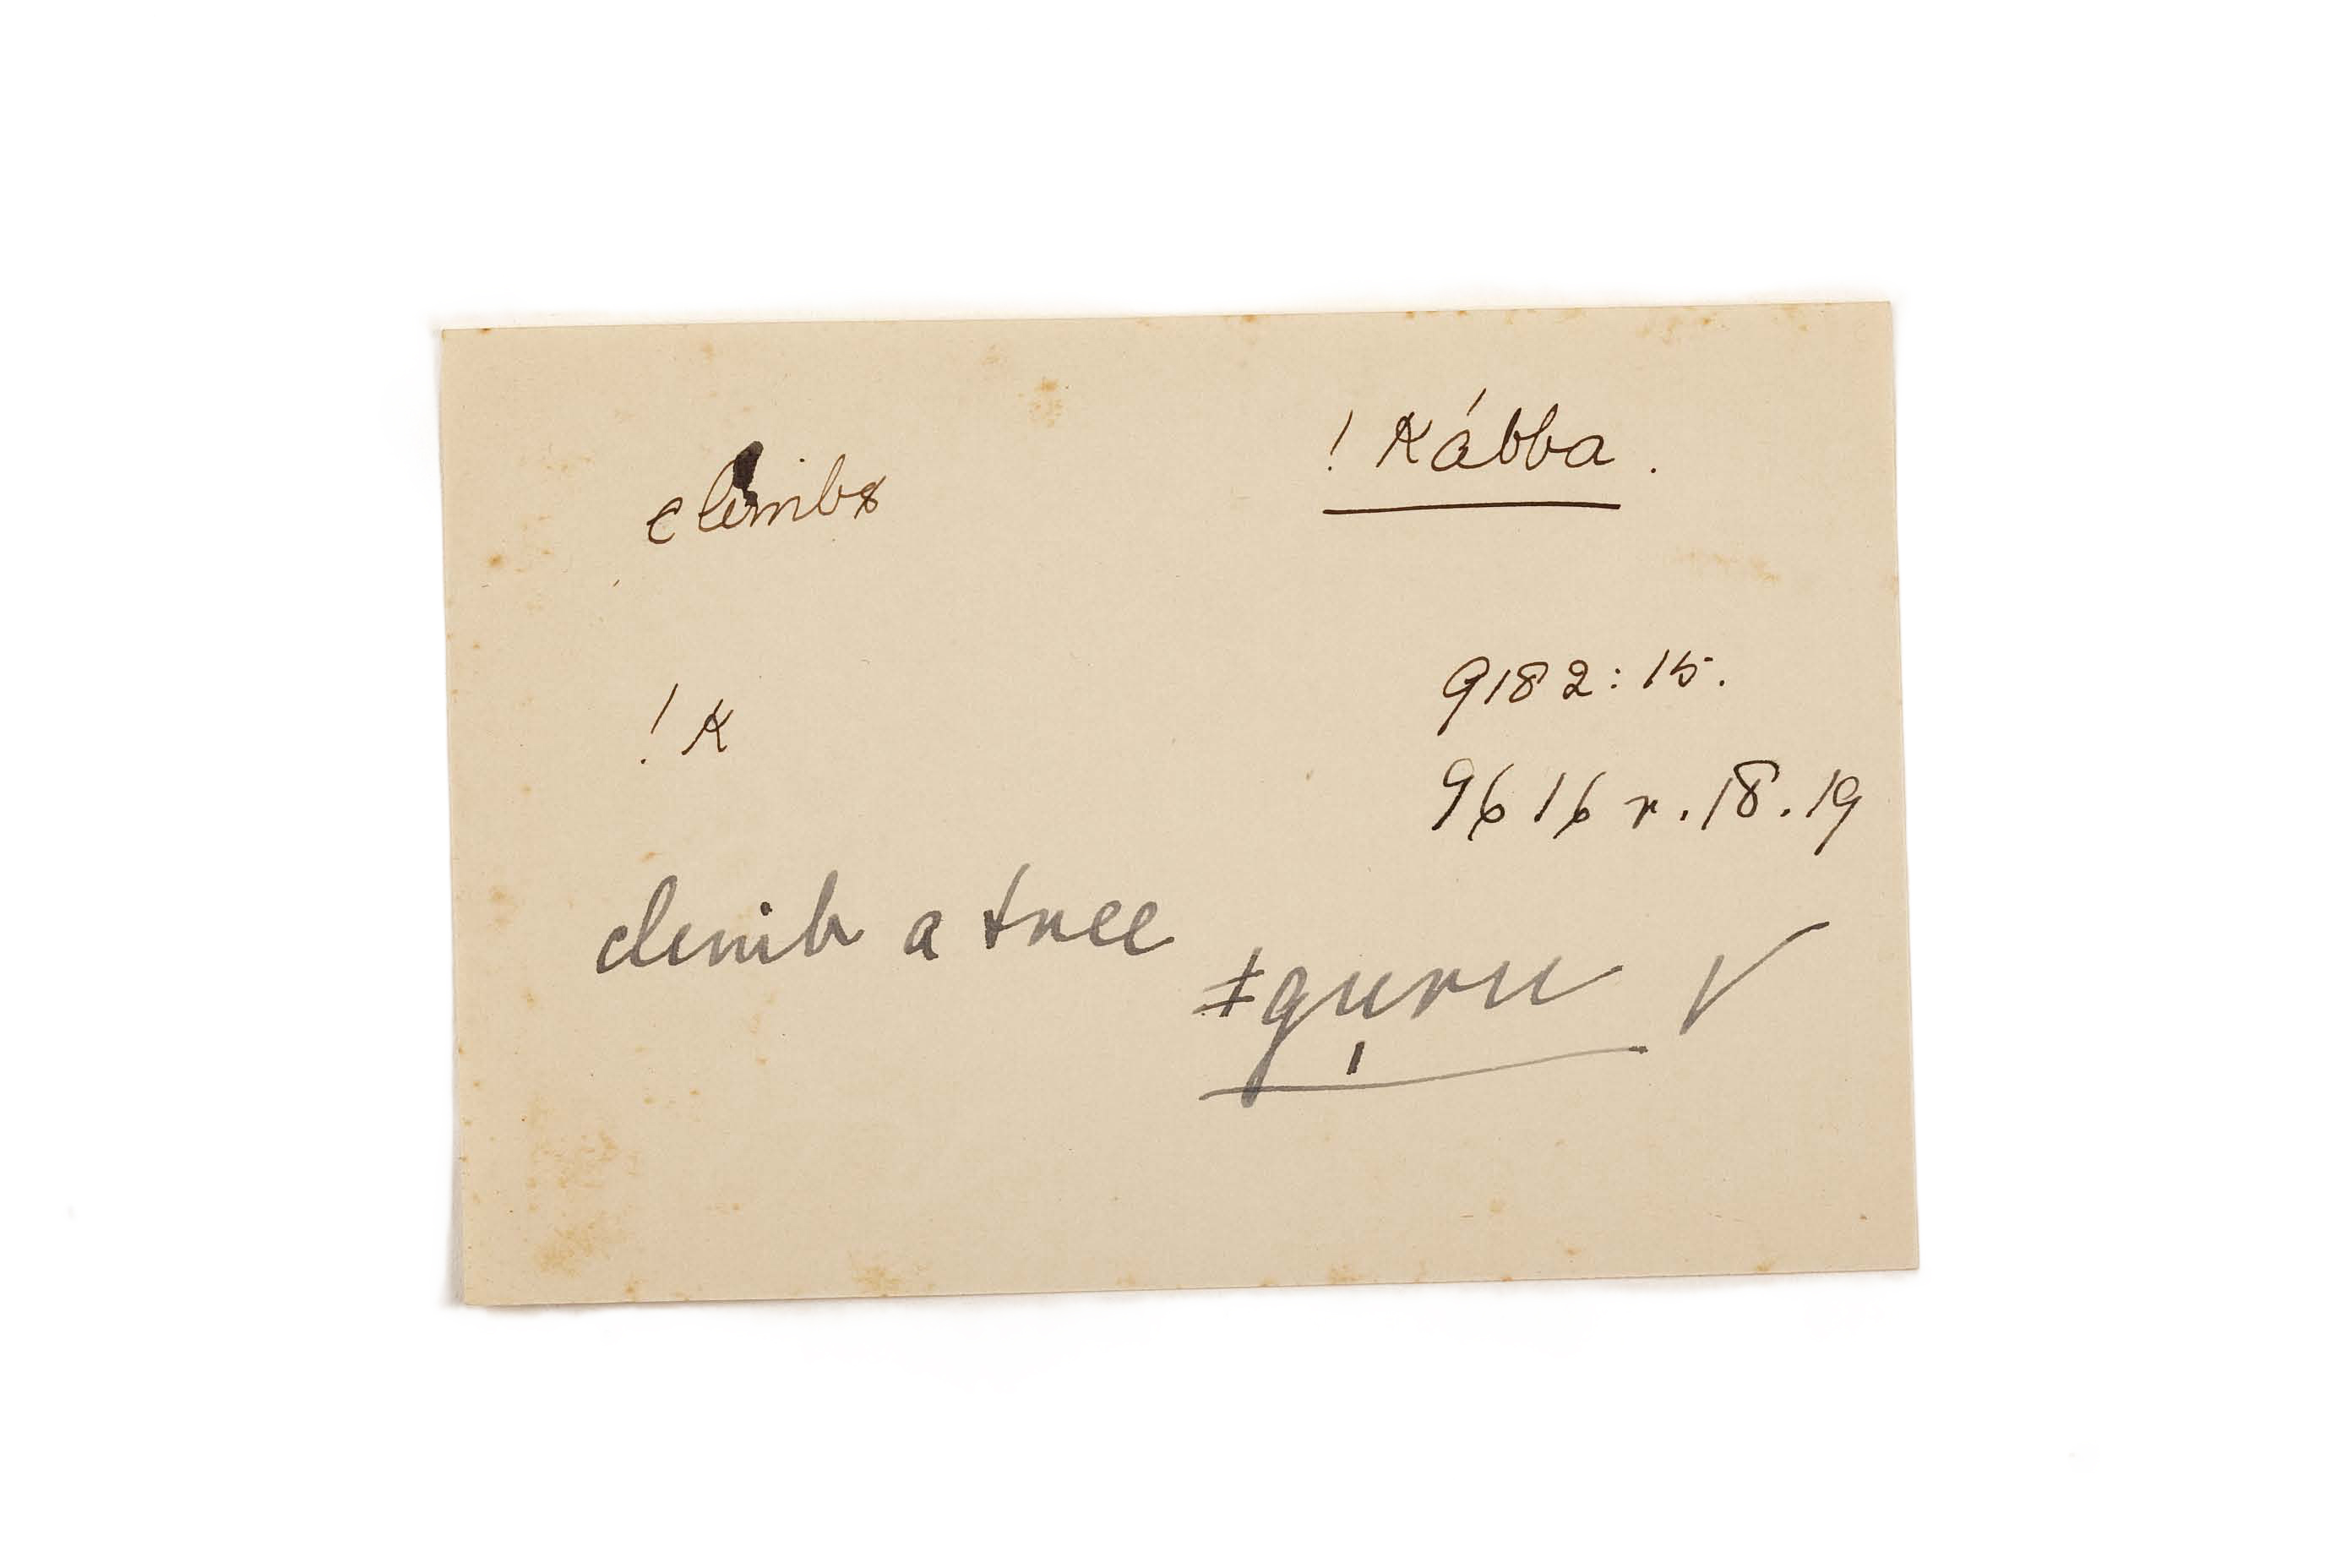 climbs ! kábba.
! k 9182:15.
9616 r. 18. 19
climb a tree ǂguru ✓